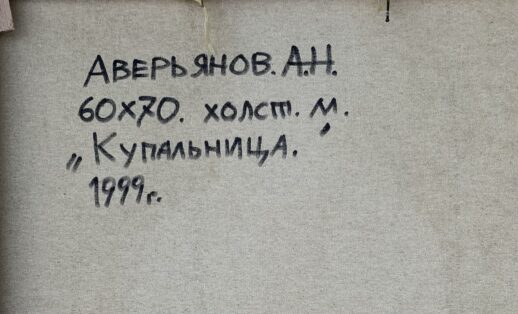 Аверьянов. А.Н.
60х70. холст. м.
„Купальница.“
1999г.